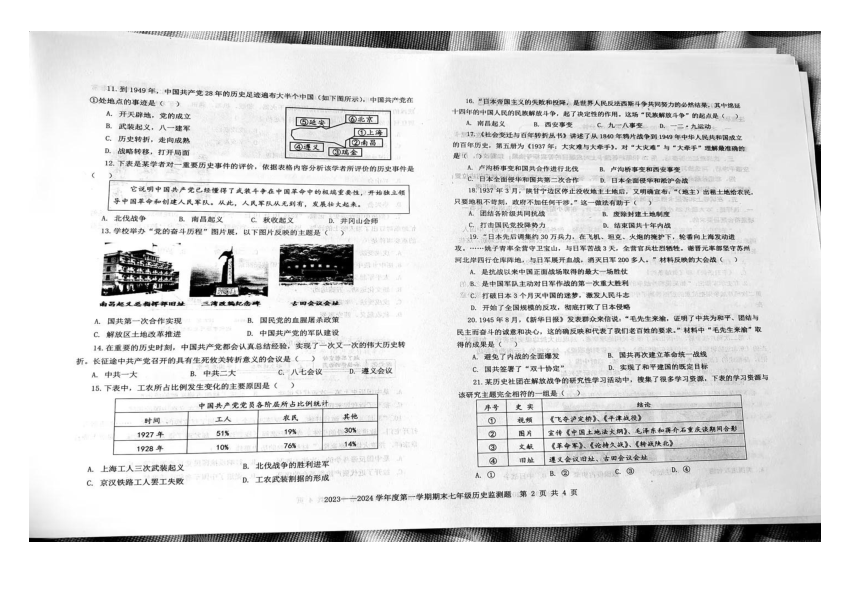 11. 到 1949 年，中国共产党 28 年的历史足迹遍布大半个中国（如下图所示），中国共产党在
①处地点的事迹是（  ）
A. 开天辟地，党的成立
B. 武装起义，八一建军
C. 历史转折，走向成熟
D. 战略转移，打开局面
⑤延安
⑥北京
①上海
②南昌
④遵义
③瑞金
12. 下表是某学者对一重要历史事件的评价，依据表格内容分析该学者所评价的历史事件是
（  ）
它说明中国共产党已经懂得了武装斗争在中国革命中的极端重要性，开始独立领
导中国革命和创建人民军队。从此，人民军队从无到有，发展壮大起来。
A. 北伐战争 B. 南昌起义 C. 秋收起义 D. 井冈山会师
13. 学校举办“党的奋斗历程”图片展，以下图片反映的主题是（  ）
南昌起义总指挥部旧址 三湾改编纪念碑 古田会议会址
A. 国共第一次合作实现 B. 国民党的血腥屠杀政策
C. 解放区土地改革推进 D. 中国共产党的军队建设
14. 在重要的历史时刻，中国共产党都会认真总结经验，实现了一次又一次的伟大历史转
折。长征途中共产党召开的具有生死攸关转折意义的会议是（  ）
A. 中共一大 B. 中共二大 C. 八七会议 D. 遵义会议
15. 下表中，工农所占比例发生变化的主要原因是（  ）
中国共产党党员各阶层所占比例统计
时间 工人 农民 其他
1927 年 51% 19% 30%
1928 年 10% 76% 14%
A. 上海工人三次武装起义 B. 北伐战争的胜利进军
C. 京汉铁路工人罢工失败 D. 工农武装割据的形成
16. “日本帝国主义的失败和投降，是世界人民反法西斯斗争共同努力的必然结果，其中绵延
十四年的中国人民的民族解放斗争，起了决定性的作用。这场“民族解放斗争”的起点是（  ）
A. 南昌起义 B. 西安事变 C. 九一八事变 D. 一二·九运动
17. 《社会变迁与百年转折丛书》讲述了从 1840 年鸦片战争到 1949 年中华人民共和国成立
的百年历史，第五册为《1937 年：大灾难与大牵手》。对“大灾难”与“大牵手”理解最准确的
是（  ）
A. 卢沟桥事变和国共合作进行北伐 B. 卢沟桥事变和西安事变
C. 日本全面侵华和国共第二次合作 D. 日本全面侵华和淞沪会战
18. 1937 年 3 月，陕甘宁边区停止没收地主土地后，又明确宣布：“（地主）出租土地给农民，
只要地租不苛刻，政府不加任何干涉。”这一做法有助于（  ）
A. 团结各阶级共同抗战 B. 废除封建土地制度
C. 打击国民党投降势力 D. 结束国共十年内战
19. “日本先后调集约 30 万兵力，在飞机、坦克、火炮的掩护下，轮番向上海发动进
攻，……姚子青率全营守卫宝山，与日军苦战 3 天，全营官兵壮烈牺牲。谢晋元率部坚守苏州
河北岸四行仓库阵地，与日军展开血战，消灭日军 200 多人。”材料反映的大会战（  ）
A. 是抗战以来中国正面战场取得的最大一场胜仗
B. 是中国军队主动对日军作战的第一次重大胜利
C. 打破日本 3 个月灭中国的迷梦，激发人民斗志
D. 开始了全国规模的反攻，彻底打败了日本侵略
20. 1945 年 8 月，《新华日报》发表群众来信说，“毛先生来渝，证明了中共为和平、团结与
民主而奋斗的诚意和决心，这的确反映和代表了我们老百姓的要求。”材料中“毛先生来渝”取
得的成果是（  ）
A. 避免了内战的全面爆发 B. 国共再次建立革命统一战线
C. 国共签署了“双十协定” D. 实现了和平建国的既定目标
21. 某历史社团在解放战争的研究性学习活动中，搜集了很多学习资源，下表的学习资源与
该研究主题完全相符的一组是（  ）
序号 史实 结论
① 视频 《飞夺泸定桥》、《平津战役》
② 图片 宣传《中国土地法大纲》、毛泽东和蒋介石重庆谈判间合影
③ 文献 《革命军》、《论持久战》、《转战陕北》
④ 旧址 遵义会议旧址、古田会议会址
A. ① B. ② C. ③ D. ④
2023——2024 学年度第一学期期末七年级历史监测题 第 2 页 共 4 页